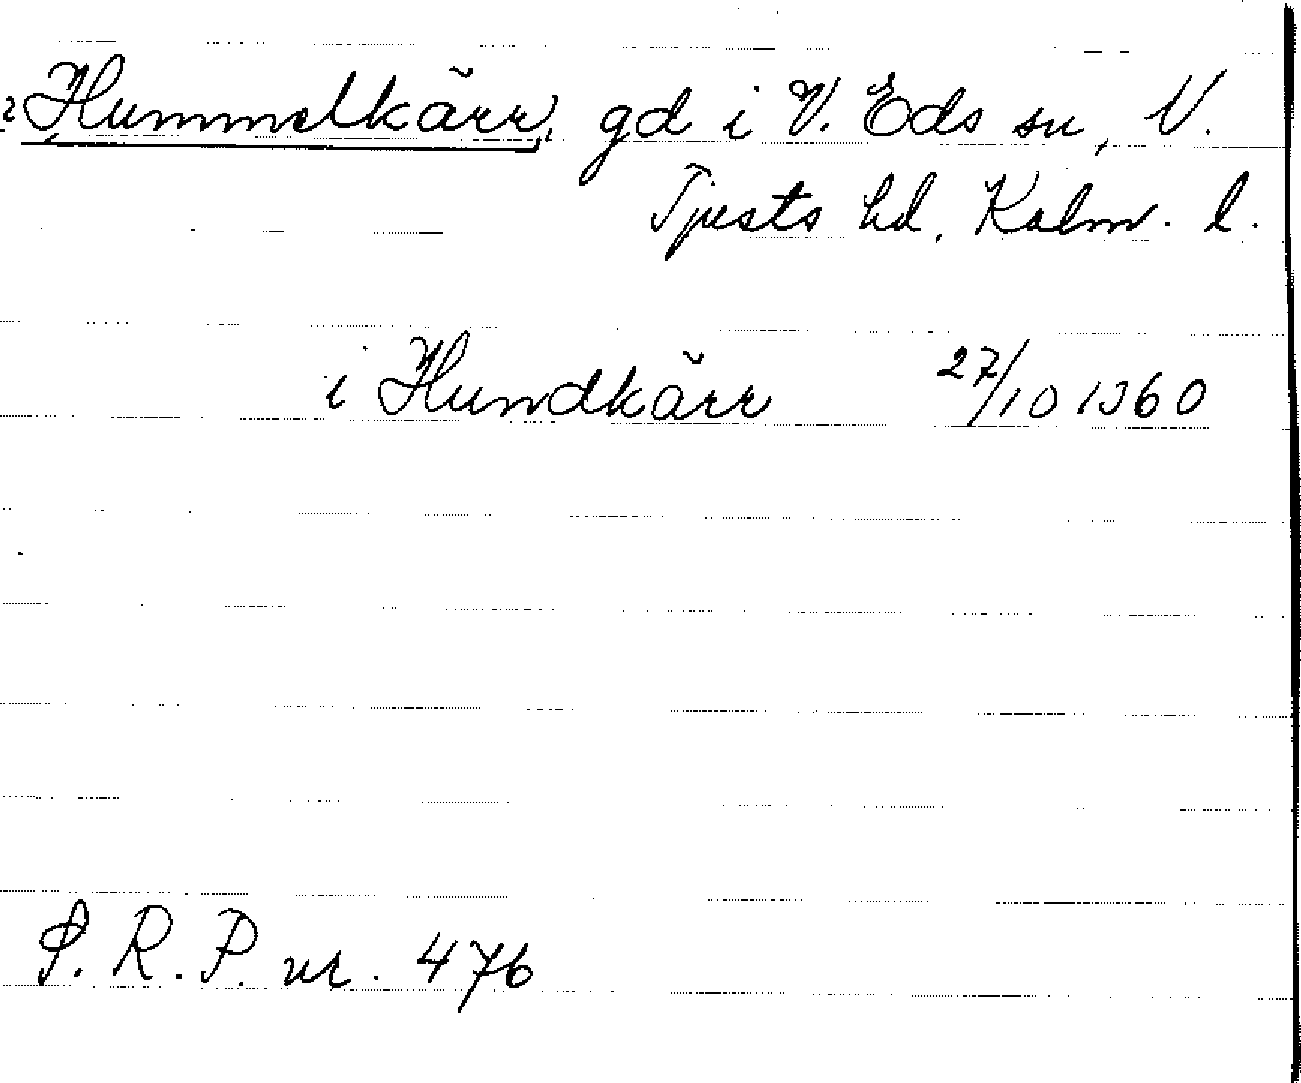 ? Hummelkärr, gd i V. Eds sn, N.
Tjusts hd. Kalm. l.
i Hundkärr 27/10 1360
S. R. P. nr. 476